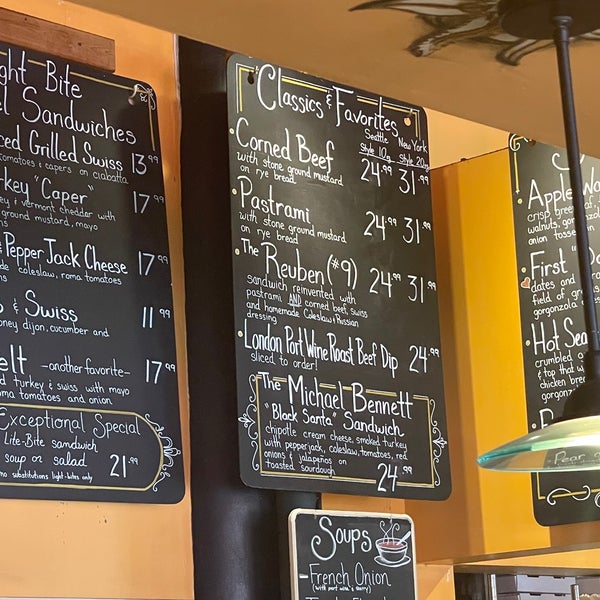 ght Bite
el Sandwiches
ced Grilled Swiss 13.99
tomatoes & capers on ciabatta
rkey "Caper" 17.99
y & vermont cheddar with
ground mustard, mayo
ns
& Pepper Jack Cheese
de coleslaw, roma tomatoes 17.99
s
s & Swiss 11.99
oney dijon, cucumber and
elt -another favorite- 17.99
d turkey & swiss with mayo
ma tomatoes and onions
Exceptional Special
Lite-Bite sandwich
soup or salad 21.99
no substitutions light-bites only
Classics & Favorites
Seattle New York
Style 10oz Style 20oz
Corned Beef 24.99 31.99
with stone ground mustard
on rye bread
Pastrami 24.99 31.99
with stone ground mustard
on rye bread
The Reuben (#9) 24.99 31.99
sandwich reinvented with
pastrami AND corned beef, swiss
and homemade Coleslaw & Russian
dressing
London Port Wine Roast Beef Dip 24.99
sliced to order!
The Michael Bennett
"Black Santa" Sandwich
chipotle cream cheese, smoked turkey
with pepperjack, coleslaw, tomatoes, red
onions & jalapeños on
toasted sourdough 24.99
Soups
French Onion
(with port wine & sherry)
Apple Wa
crisp gree
walnuts, gor
onion tosse
First "Da
dates and
field of gr
gorgonzola
Hot Sea
crumbled
& top that w
chicken brea
gorgonz
Pear